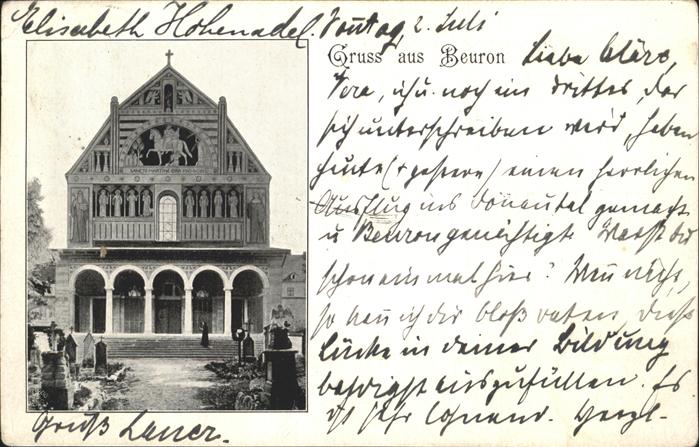 Elisabeth Hohenadel. Sontag 2. Juli
Gruss aus Beuron
Liebe Cläre,
Vera, ich u. noch ein drittes, das
sich unterschreiben wird, haben
heute (+ gestern) einen herrlichen
Ausflug ins Donautal gemacht
u. Beuron genächtigt. Warst du
schon einmal hier? Wenn nicht,
so kann ich dir bloß raten, diese
Lücke in deiner Bildung
baldigst auszufüllen. Es
ist sehr Herzl-
SANCTE MARTINE ORA PRO NOBIS
Gruß